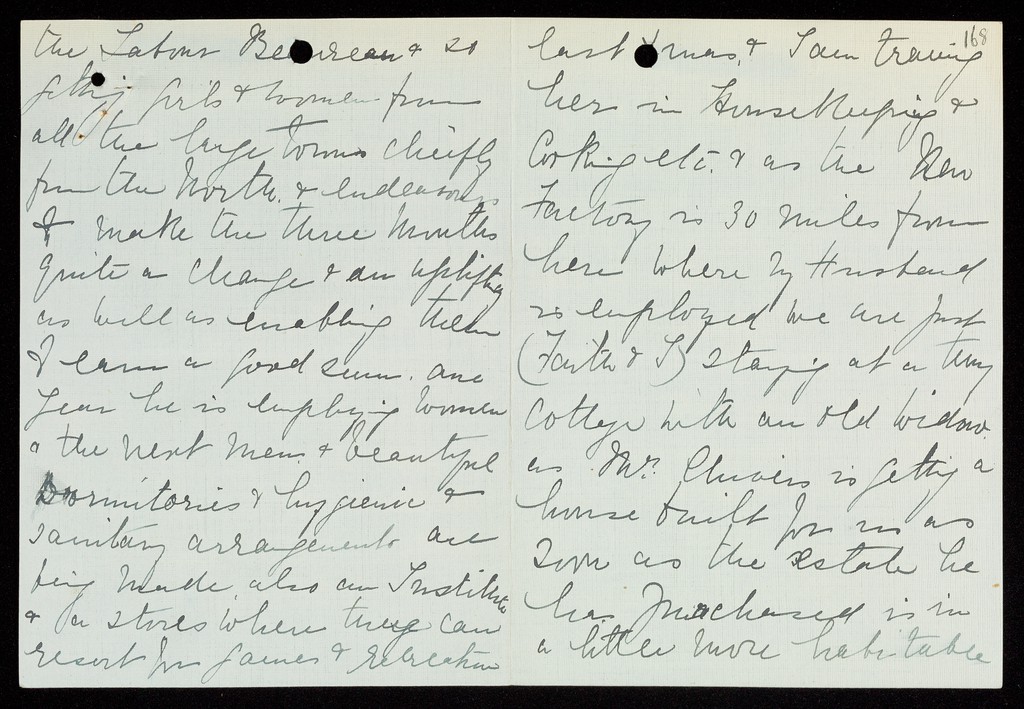 the Labour Beaureau & so
getting girls & women from
all the large towns cheifly
from the North. & endeavours
to make the three Months
quite a change & an uplifting
as well as enabling them
to earn a good sum. one
Year he is employing women
& the next Men. & beautiful
Dormitories & hygienic &
sanitary arrangements are
being made, also an Institute
& a stores where they can
resort for games & recreation
168
last Xmas. & I am training
her in HouseKeeping &
Cooking etc. & as the New
Factory is 30 miles from
here where my Husband
is employed we are just
(Faith & I) staying at a tiny
Cottage with an old widow.
as Mr. Chivers is getting a
house built for us as
soon as the estate he
has purchased is in
a little more habitable